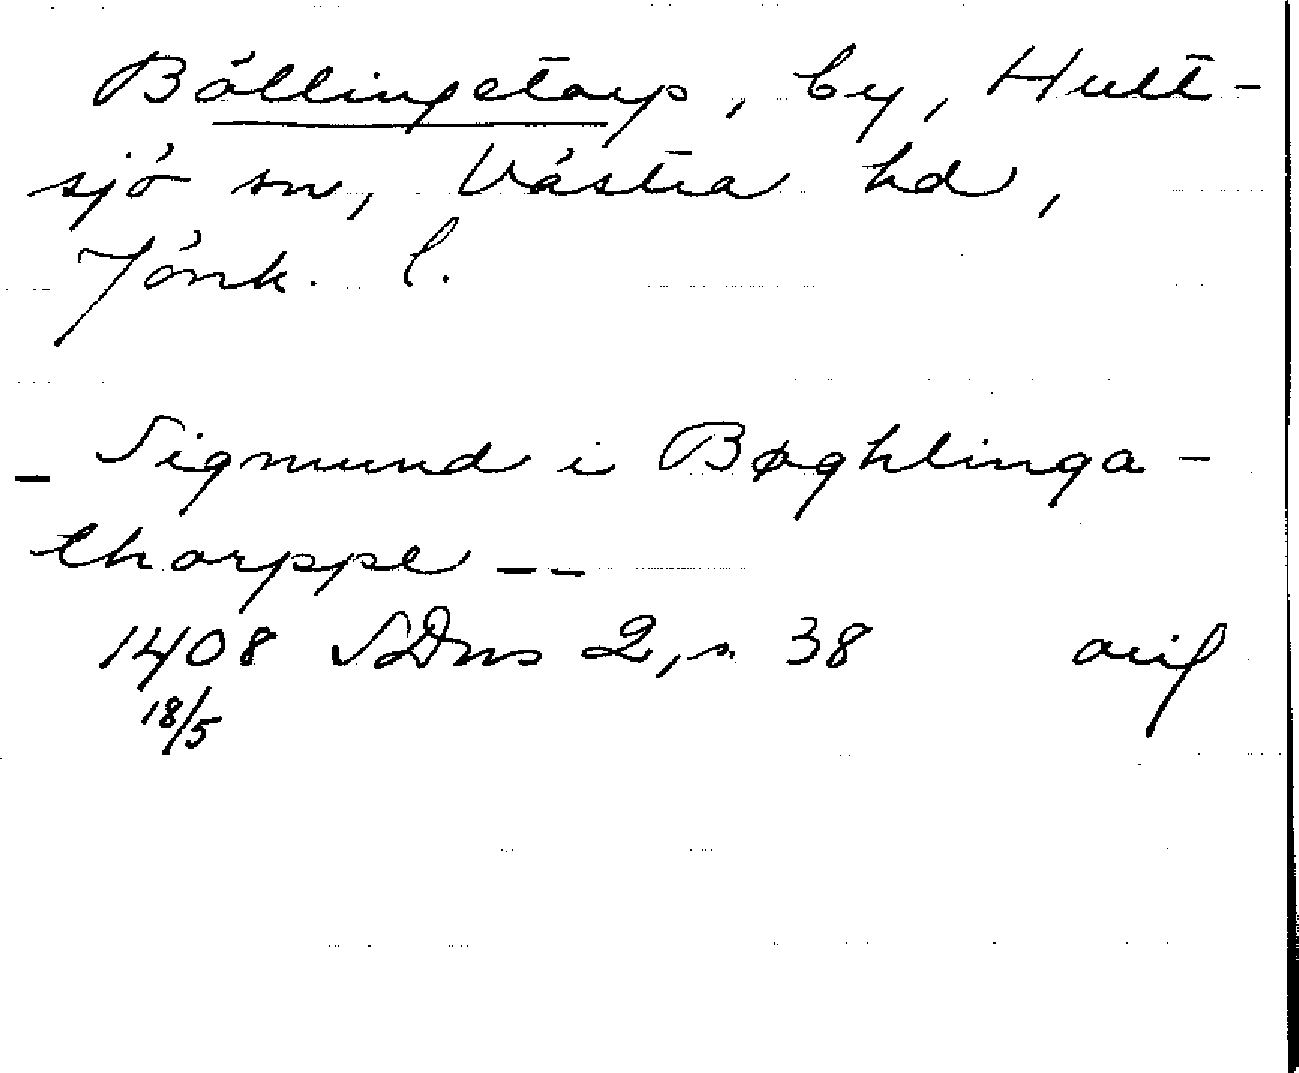 Böllingetorp, by, Hult-
sjö sn, Västra hd,
Jönk. l.
_ Sigmund i Bøghlinga-
thorppe _ _
1408 SDns 2, s. 38 avif
18/5